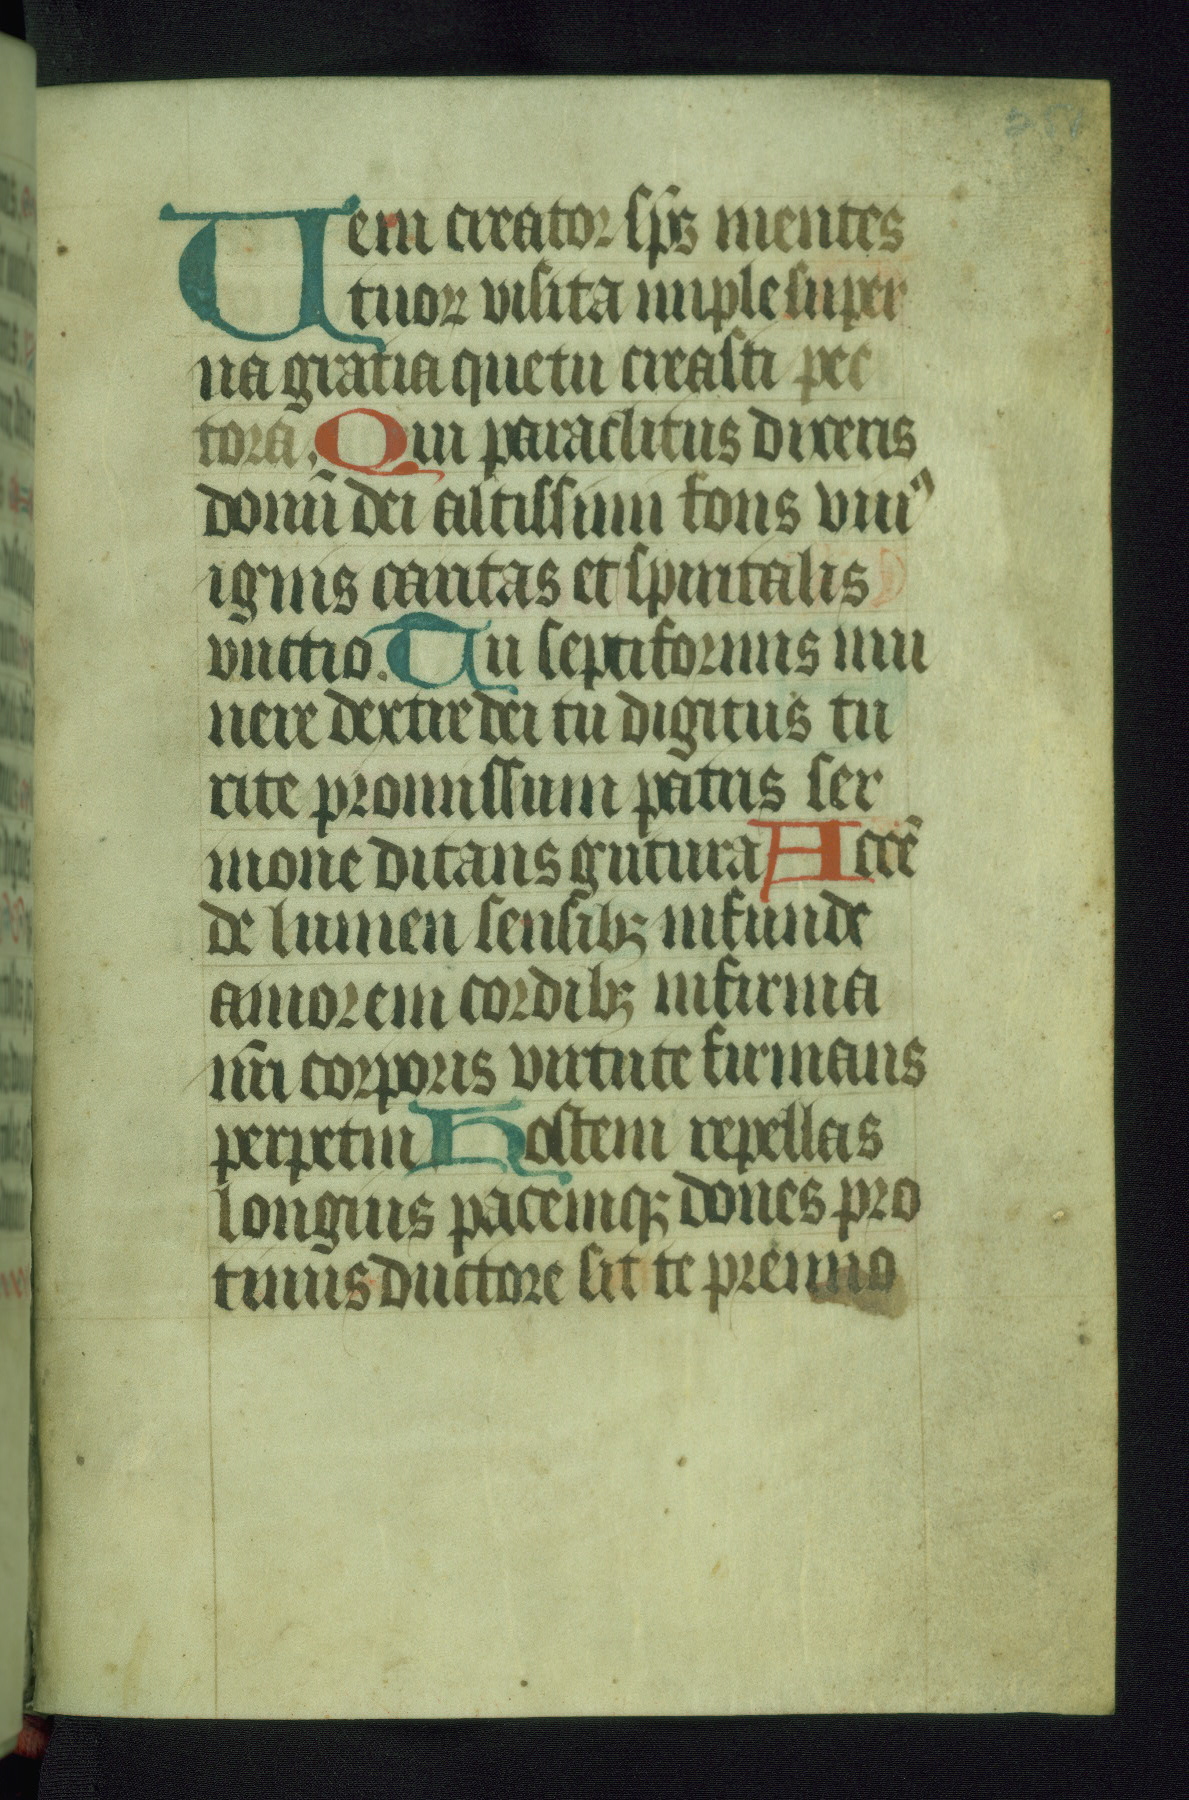 Veni creator sp̄s mentes
tuoꝝ visita imple super
na gratia que tu creasti pec
tora. Qui paraclitus diceris
donū dei altissimi fons viuꝰ
ignis caritas et spiritalis
vnctio. Tu septiformis mu
nere dextre dei tu digitus tu
rite promissum patris ser
mone ditans gutura Accē
de lumen sensibꝫ infunde
amorem cordibꝫ infirma
nr̄i corporis virtute firmans
perpetui Hostem repellas
longius pacemqꝫ dones pro
tinus ductore sit te preuio